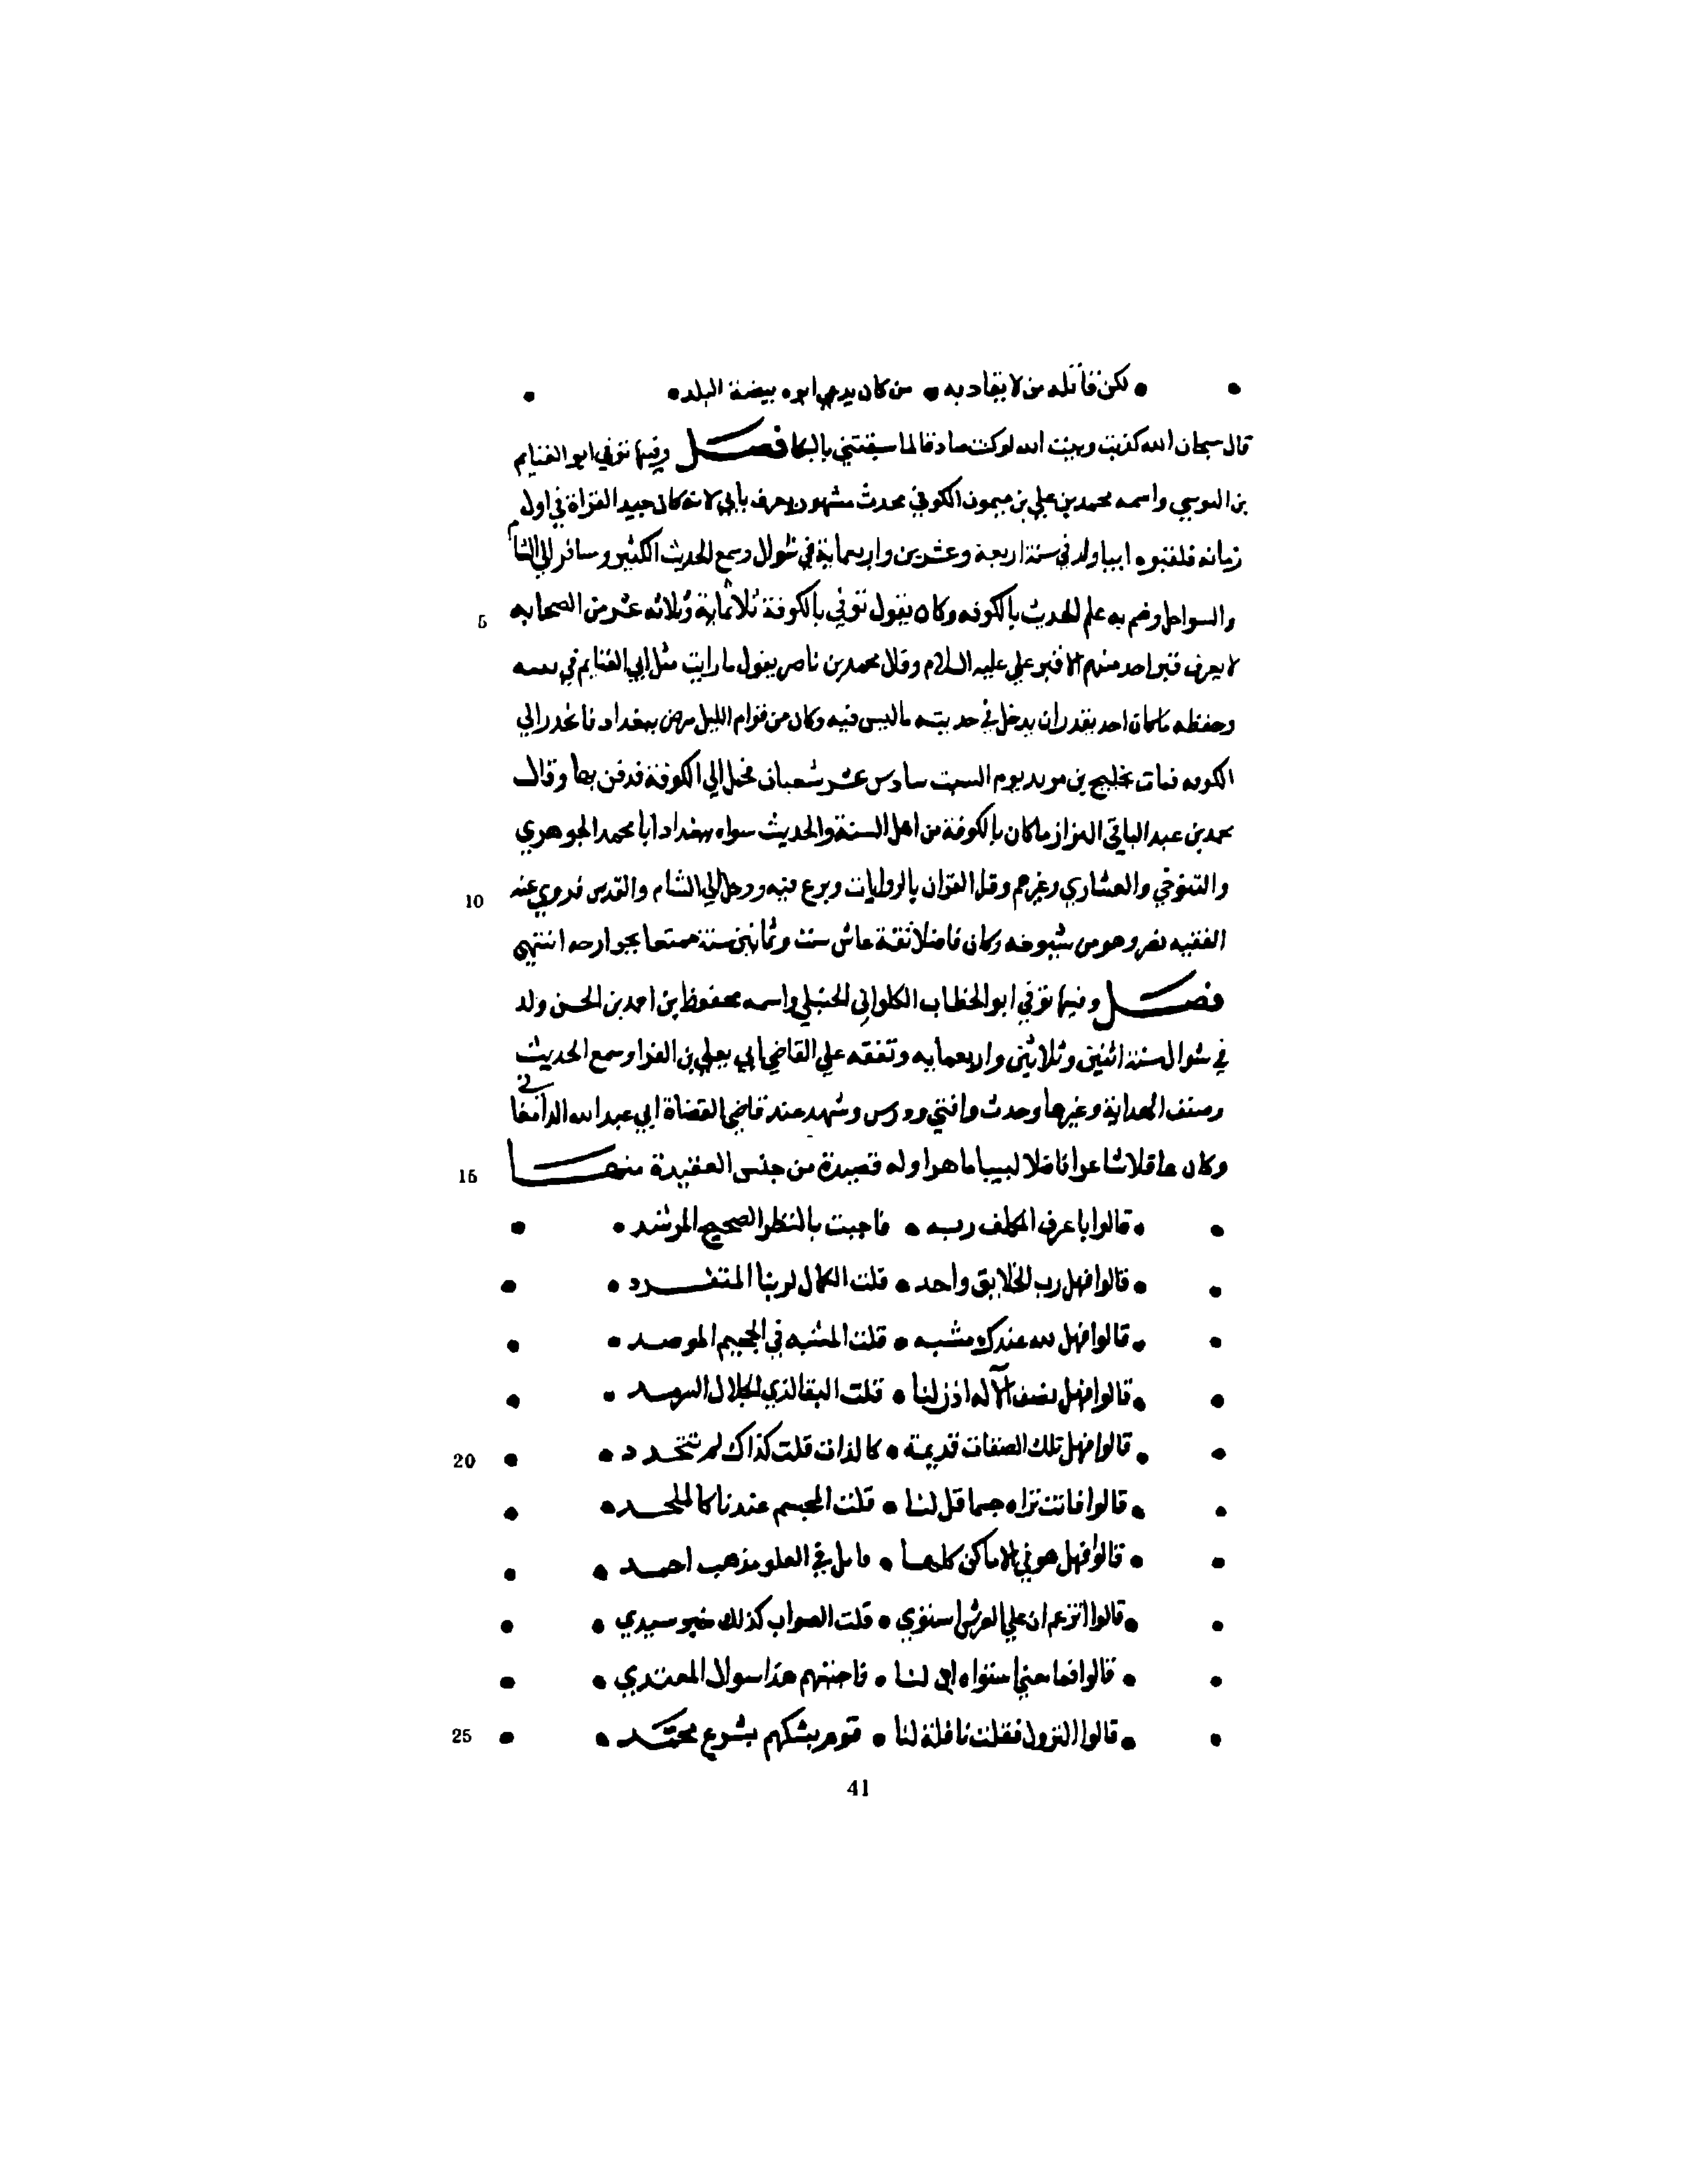 • • لكن قاتله من لا يقاد به • من كان يدعي ابوه بيضة البلد • •
قال سبحان الله كذبت وبيت الله لو كنت صادقا لما سبقتني بالبكا فصل وفيها توفي ابو الغنايم
بن النوسي واسمه محمد بن علي بن ميمون الكوفي محدث مشهور يعرف بابي لانه كان جيد القراة في اول
زمانه فلقبوه ابيا ولد في سنة اربعة وعشرين واربعماية في شوال وسمع الحديث الكثير وسافر الي الشام
والسواحل وختم به علم الحديث بالكوفه وكان يقول توفي بالكوفة ثلاثماية وثلاثه عشر من الصحابه 5
لا يعرف قبر احد منهم الا قبر علي عليه السلام وقال محمد بن ناصر يقول ما رايت مثل ابي الغنايم في
وحفظه ماكان احد يقدر ان يدخل في حديثه ما ليس فيه وكان من قوام الليل مرض ببغداد فانحدر الي
الكوفه فمات بخليج بن مريد يوم السبت سادس عشر شعبان فحمل الي الكوفة فدفن بها وقال
محمد بن عبد الباقي البزاز ماكان بالكوفة من اهل السنة والحديث سواه ببغداد ابا محمد الجوهري
والتنوخي والعشاري وغيرهم وقرا القران بالروايات وبرع فيه ورحل الي الشام والقدس فروي عنه 10
الفقيه نصر وهو من شيوخه وكان فاضلا ثقة عاش ست وثمانين سنة ممتعا بجوارحه انتهي
فصل وفيها توفي ابو الخطاب الكلواني الحنبلي واسمه محفوظ بن احمد بن الحسن ولد
في شوال سنة اثنين وثلاثين واربعمايه وتفقه علي القاضي ابي يعلي بن الفرا وسمع الحديث
وصنف الهداية وغيرها وحدث وافتي ودرس وشهد عند قاضي القضاة ابي عبد الله الدامغاني
وكان عاقلا شاعرا فاضلا لبيبا ماهرا وله قصيدة من جنس العقيدة منها 15
• • قالوا با عرف المكلف ربه • فاجبت بالنظر الصحيح المرشد • •
• • قالوا فهل رب الخلايق واحد • قلت الكمال لربنا المتفرد • •
• • قالوا فهل لله عندك مشبه • قلت المشبه في الجحيم الموصد • •
• • قالوا فهل نصف الاله اذن لنا • قلت البقا لذي الجلال السرمد • •
• • قالوا فهل تلك الصفات قديمة • كالذات قلت كذاك لم تتجدد • • 20
• • قالوا فانت تراه جسما قل لنا • قلت المجسم عندنا كالملحد • •
• • قالوا فهل هو في الاماكن كلها • فامل في العلو مذهب احمد • •
• • قالوا اتزعم ان علي العرش استوي • قلت الصواب كذلك خبر سيدي • •
• • قالوا فما معني استواه ابن لنا • فاجبتهم هذا سوال المعتدي • •
• • قالوا النزول فقلت ناقلة لنا • قوم بشكهم بشرع محمد • • 25
41